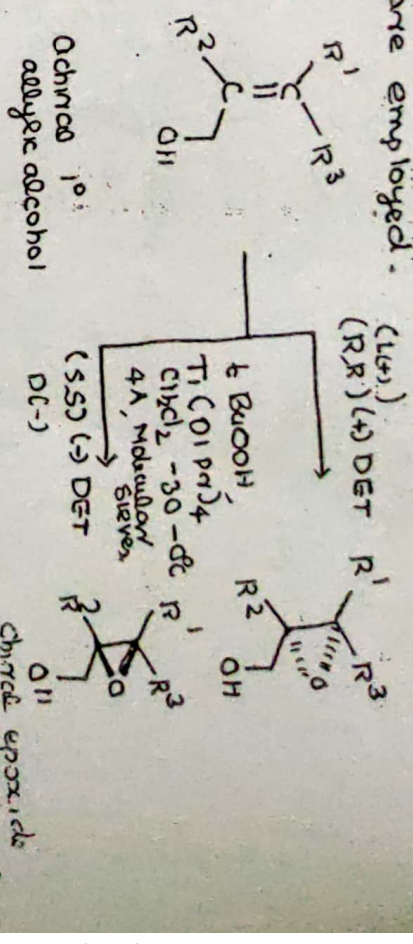 are employed.
R¹ R³
C = C
R² OH
Achiral 1°
allylic alcohol
(L(+))
(R,R) (+) DET
t BuOOH,
Ti(OiPr)4
CH2Cl2 -30 -0c
4A, Molecular
Sieves
(S,S) (-) DET
D(-)
R¹ R³
O
R² OH
R¹ R³
O
R² OH
Chiral epoxide